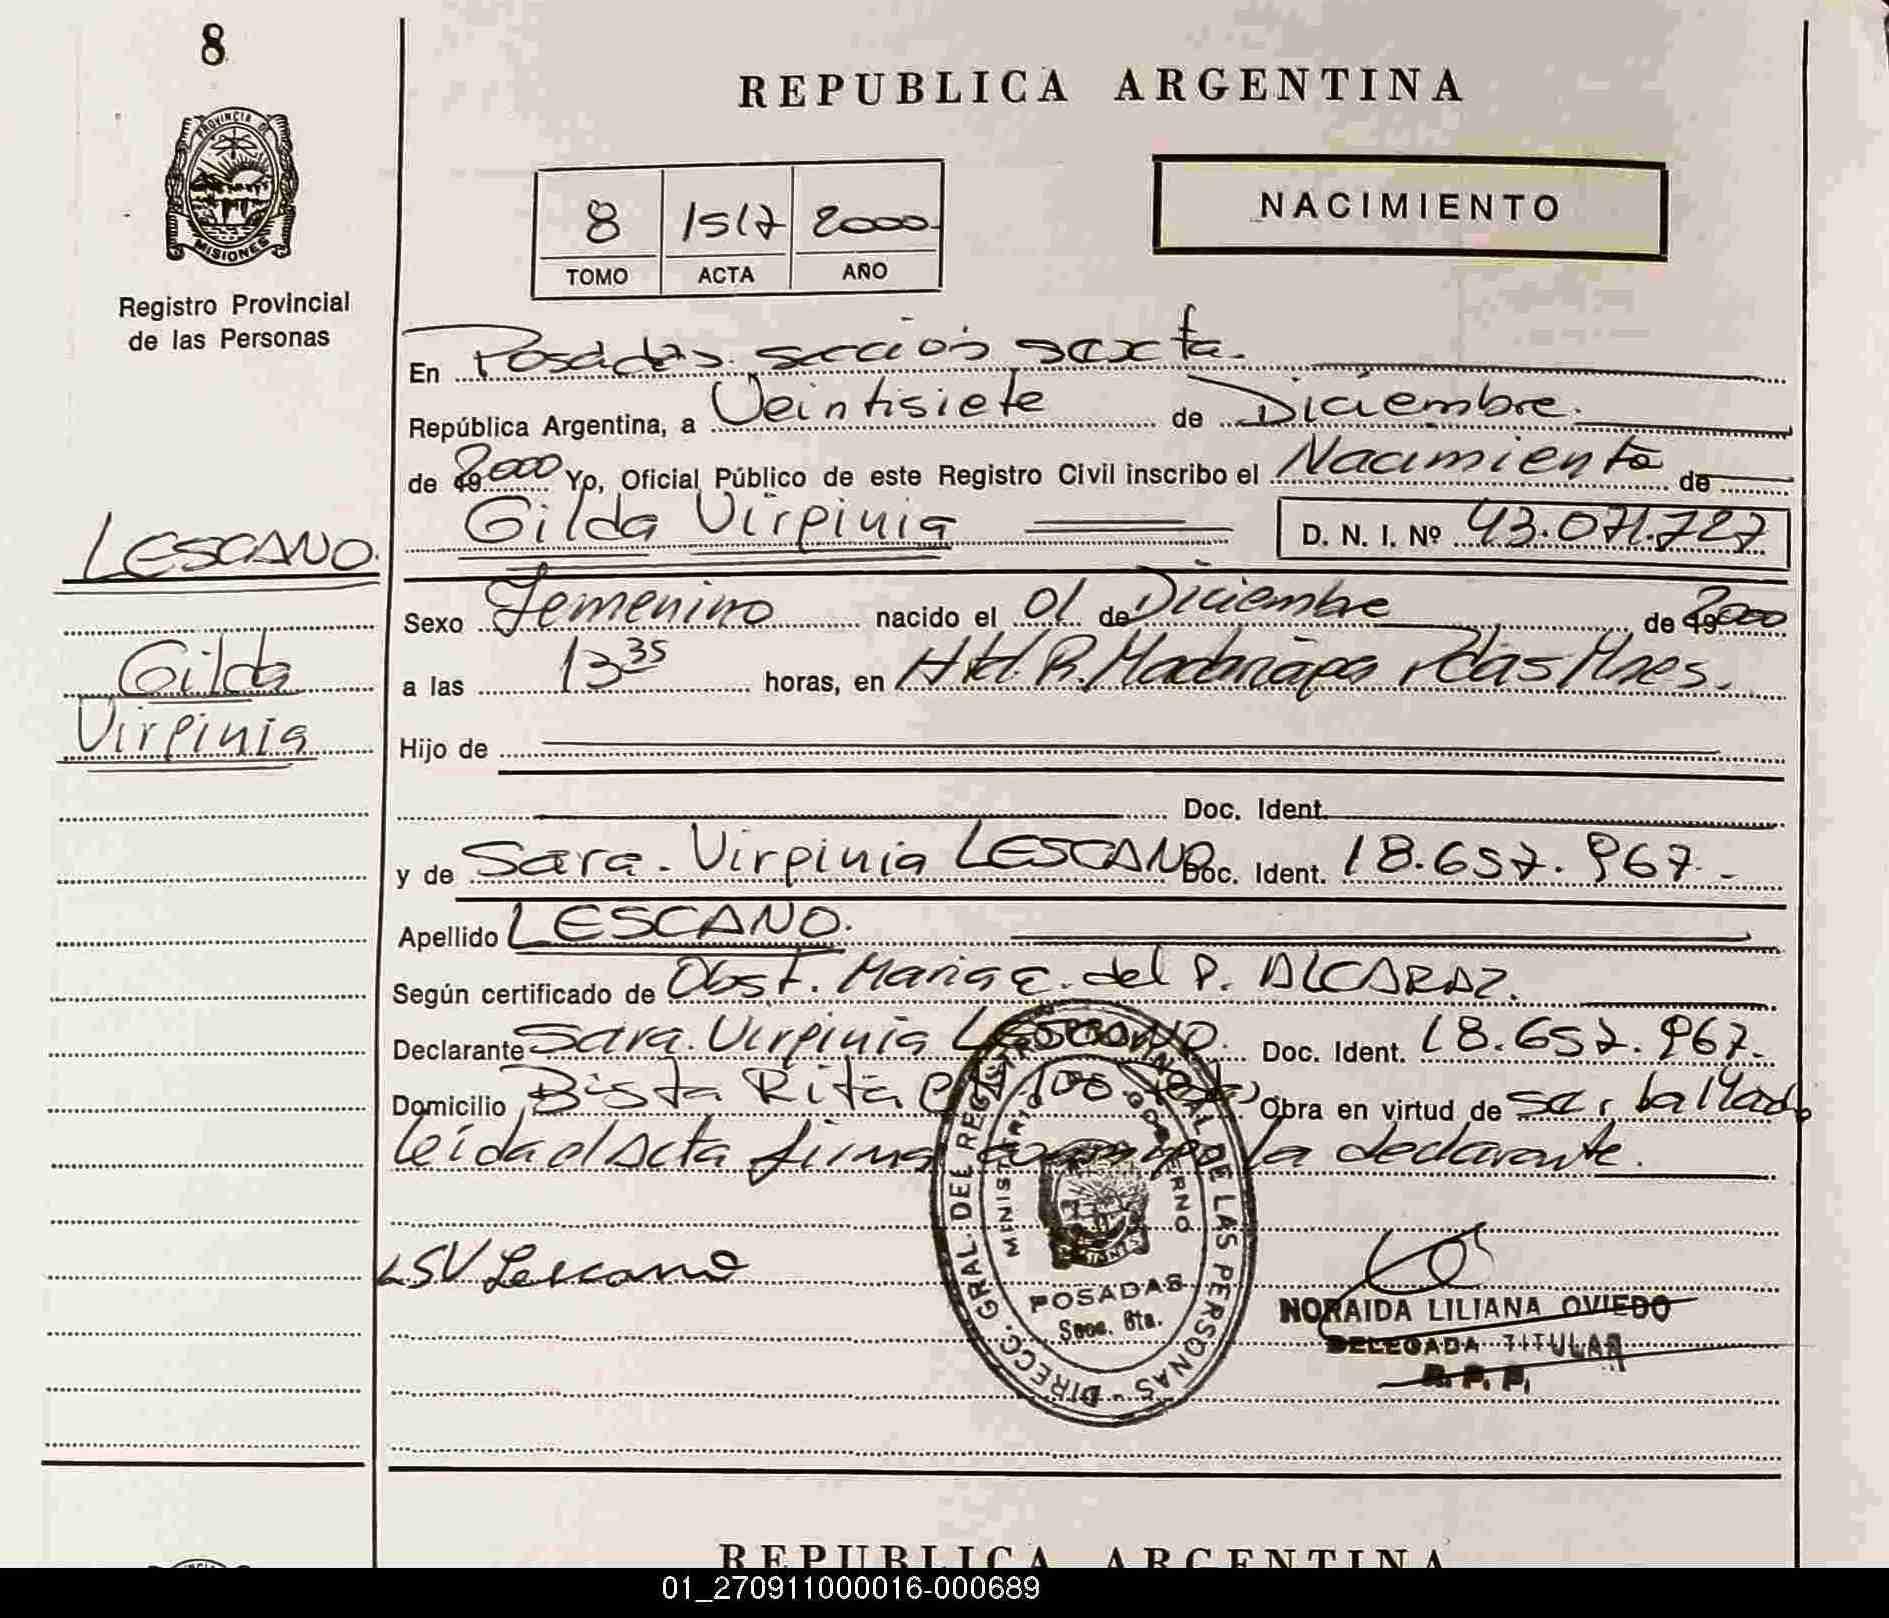 8
PROVINCIA DE
MISIONES
Registro Provincial
de las Personas
LESCANO.
Gilda
Virginia
REPUBLICA ARGENTINA
8 1517 2000
TOMO ACTA AÑO
NACIMIENTO
En Posadas. sección sexta.
República Argentina, a Veintisiete de Diciembre.
de 2000 Yo, Oficial Público de este Registro Civil inscribo el Nacimiento de
Gilda Virginia D. N. I. Nº 43.071.727
Sexo Femenino nacido el 01 de Diciembre de 2000
a las 13 35 horas, en R. Madariaga
Hijo de
Doc. Ident.
y de Sara. Virginia LESCANO Doc. Ident. 18.657.967.-
Apellido LESCANO.
Según certificado de Obst. Maria E. del P. ALCARAZ.
Declarante Sara. Virginia LESCANO. Doc. Ident. 18.657.967.
Domicilio Rita Obra en virtud de ser la Madre
leida el Acta firma la declarante.
LSV Lescano
DIRECC. GRAL. DEL REGISTRO PROVINCIAL DE LAS PERSONAS
MINISTERIO DE GOBIERNO
POSADAS
Secc. 6ta.
NORAIDA LILIANA OVIEDO
DELEGADA TITULAR
R. P. P.
REPUBLICA ARGENTINA
01_270911000016-000689